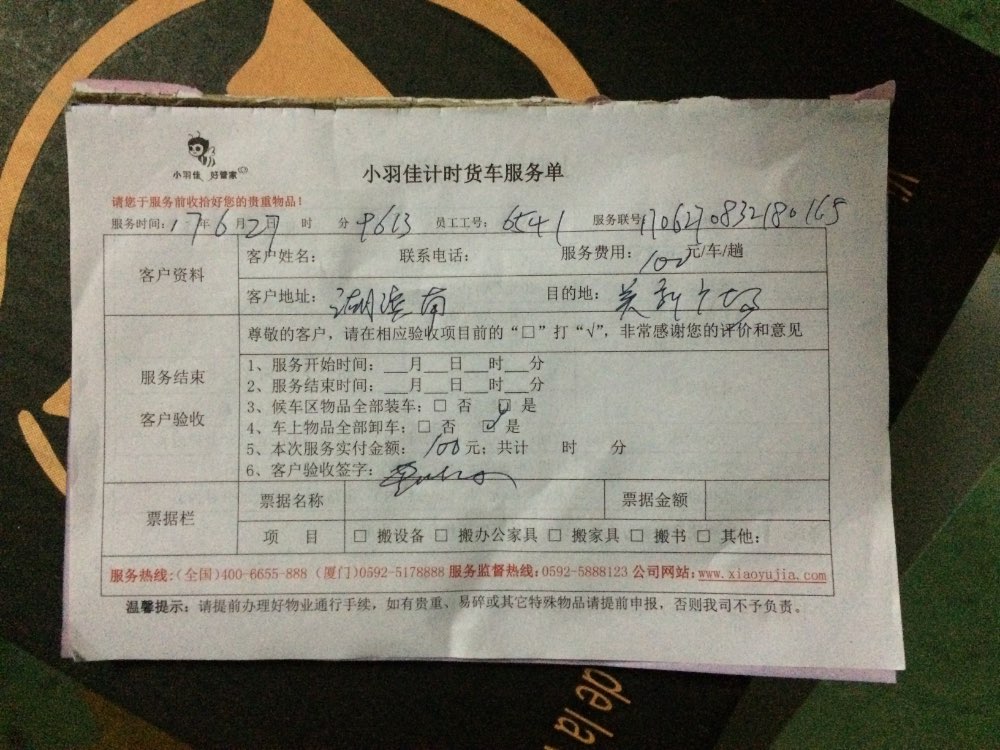 小羽佳 好管家
小羽佳计时货车服务单
请您于服务前收拾好您的贵重物品！
服务时间：17年6月27日 时 分 9613 员工工号：6541 服务联号1706270832180165
客户资料
客户姓名： 联系电话： 服务费用：100元/车/趟
客户地址：湖滨南 目的地：美新广场
服务结束
客户验收
尊敬的客户，请在相应验收项目前的“□”打“√”，非常感谢您的评价和意见
1、服务开始时间：___月___日___时___分
2、服务结束时间：___月___日___时___分
3、候车区物品全部装车：□ 否 ☑ 是
4、车上物品全部卸车：□ 否 ☑ 是
5、本次服务实付金额： 100元；共计 时 分
6、客户验收签字：
票据栏
票据名称 票据金额
项 目 □ 搬设备 □ 搬办公家具 □ 搬家具 □ 搬书 □ 其他：
服务热线：(全国)400-6655-888 (厦门)0592-5178888 服务监督热线：0592-5888123 公司网站：www.xiaoyujia.com
温馨提示：请提前办理好物业通行手续，如有贵重、易碎或其它特殊物品请提前申报，否则我司不予负责。
de la